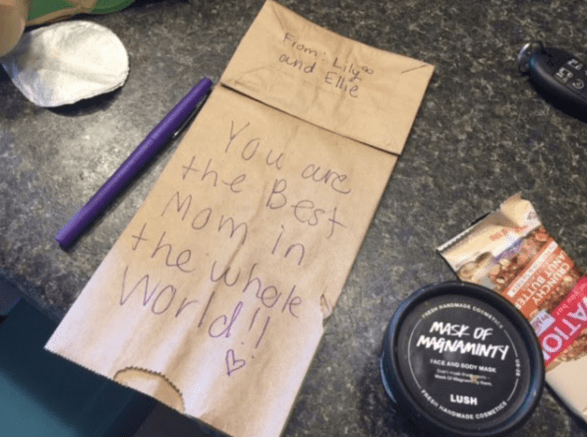 From: Lily
and Ellie
You are
the Best
Mom in
the whole
World!!
FRESH HANDMADE COSMETICS
MASK OF
MAGNAMINTY
FACE AND BODY MASK
LUSH
FRESH HANDMADE COSMETICS
CRUNCHY
NUT BUTTER